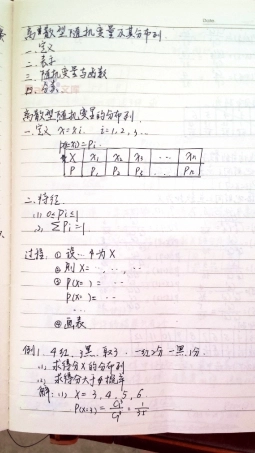 离散型随机变量及其分布列
一. 定义
二. 表示
三. 随机变量与函数
四. 分类
离散型随机变量的分布列
一. 定义 X=xi. i=1, 2, 3...
P(X=xi)=Pi.
X x₁ x₂ x₃ ... xn
P P₁ P₂ P₃ ... Pn
二. 特征
(1) 0≤Pi≤1
(2) ΣPi=1
过程: ① 设...为X
② 则X=..., ..., ...
③ P(X= )= ...
P(X= )= ...
...
④ 画表
例1. 4红, 3黑, 取3. 一红2分 一黑1分.
(1) 求得分X的分布列
(2) 求得分大于 概率
解: (1) X=3, 4, 5, 6.
P(X=3)= =1/35